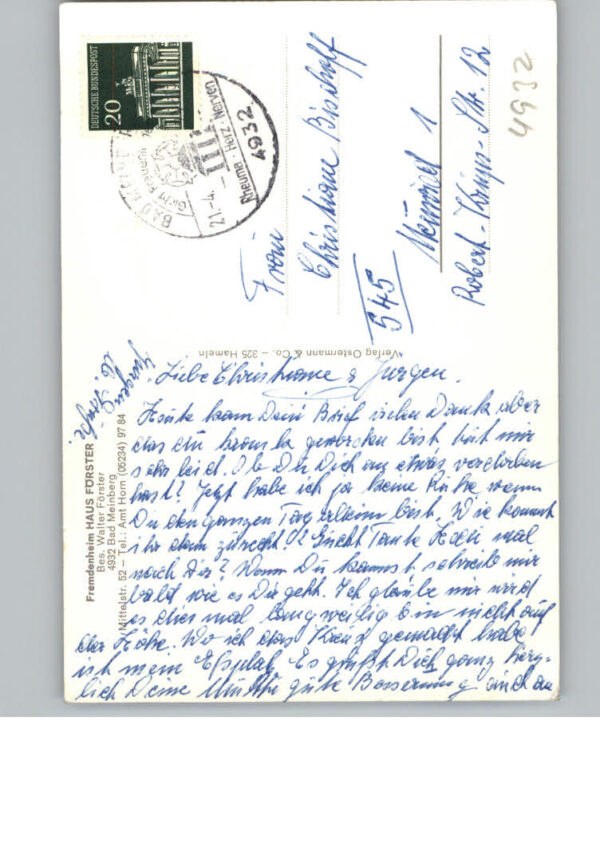 DEUTSCHE BUNDESPOST
20
BAD MEINBERG
Gicht Frauenln
21.-4.
Rheuma·Herz·Nerven
4932
4932
Frau
Christiane Bischoff
545 Neuwied 1
Robert-Krups-Str. 12
Verlag Ostermann & Co. – 325 Hameln
Fremdenheim HAUS FÖRSTER
Bes. Walter Förster
4932 Bad Meinberg
Mittelstr. 52 – Tel.: Amt Horn (05234) 97 84
Liebe Christiane & Jürgen.
Heute kam Dein Brief vielen Dank aber
das du krank geworden bist tut mir
sehr leid. Ob Du Dich an etwas verdorben
hast? Jetzt habe ich ja keine Ruhe wenn
Du den ganzen Tag allein bist. Wie kommt
ihr dann zurecht?? Guckt Tante Käti mal
nach Dir? Wenn Du kannst schreib mir
bald wie es Dir geht. Ich glaube mir wird
es dies mal langweilig bin nicht auf
der Höhe. Wo ich das Kreuz gemacht habe
ist mein Eßplatz. Es grüßt Dich ganz herz-
lich Deine Mutter gute Besserung auch an
Jürgen
lb. Grüße.